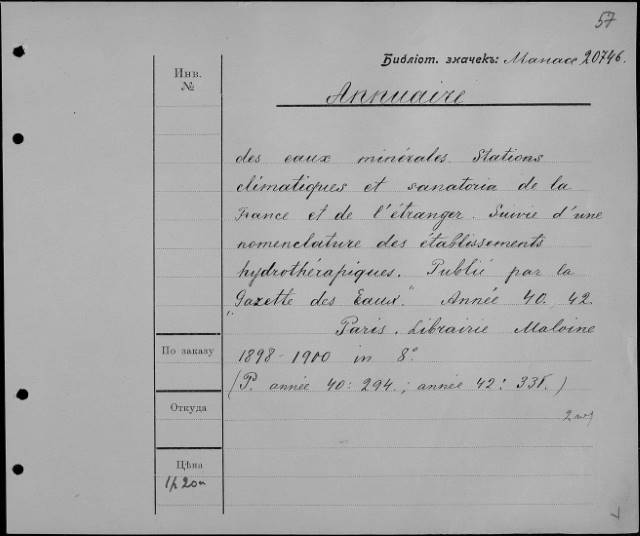 57
Библіот. значекъ: Манасе 20746.
Инв. №
Annuaire
des eaux minérales. Stations
climatiques et sanatoria de la
France et de l'étranger. Suivie d'une
nomenclature des établissements
hydrothérapiques. Publié par la
"Gazette des Eaux". Année 40. 42.
Paris. Librairie Maloine
По заказу
1898-1900 in 8°.
(P. année 40: 294.; année 42: 335.)
Откуда
Цѣна